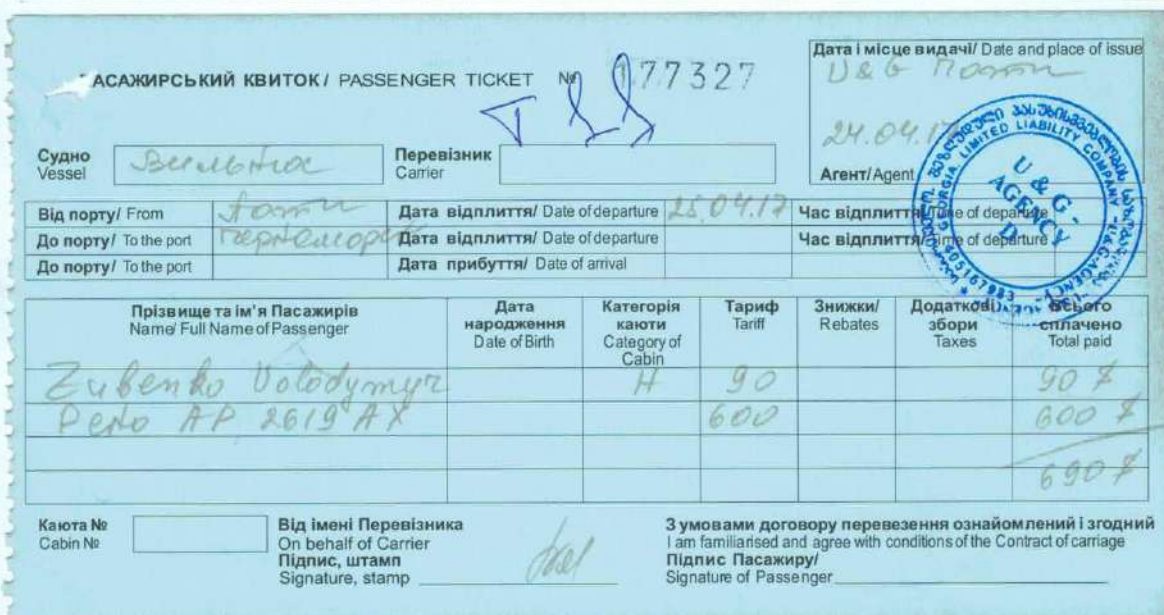 АСАЖИРСЬКИЙ КВИТОК / PASSENGER TICKET № 177327
Дата і місце видачі/ Date and place of issue
U&G Поти
24.04.17
Агент/Agent
U & G - AGENCY
GEORGIA. LIMITED LIABILITY COMPANY "U&G-AGENCY"
405167983
Судно
Vessel
Вильнюс
Перевізник
Carrier
Від порту/ From Поти Дата відплиття/ Date of departure 25.04.17 Час відплиття/Time of departure
До порту/ To the port Черноморск Дата відплиття/ Date of departure Час відплиття/Time of departure
До порту/ To the port Дата прибуття/ Date of arrival
Прізвище та ім'я Пасажирів
Name/ Full Name of Passenger
Дата народження
Date of Birth
Категорія каюти
Category of Cabin
Тариф
Tariff
Знижки/
Rebates
Додаткові збори
Taxes
Всього сплачено
Total paid
Zubenko Volodymyr H 90 90 $
Рено АР 2619 АХ 600 600 $
690 $
Каюта №
Cabin №
Від імені Перевізника
On behalf of Carrier
Підпис, штамп
Signature, stamp
З умовами договору перевезення ознайомлений і згодний
I am familiarised and agree with conditions of the Contract of carriage
Підпис Пасажиру/
Signature of Passenger